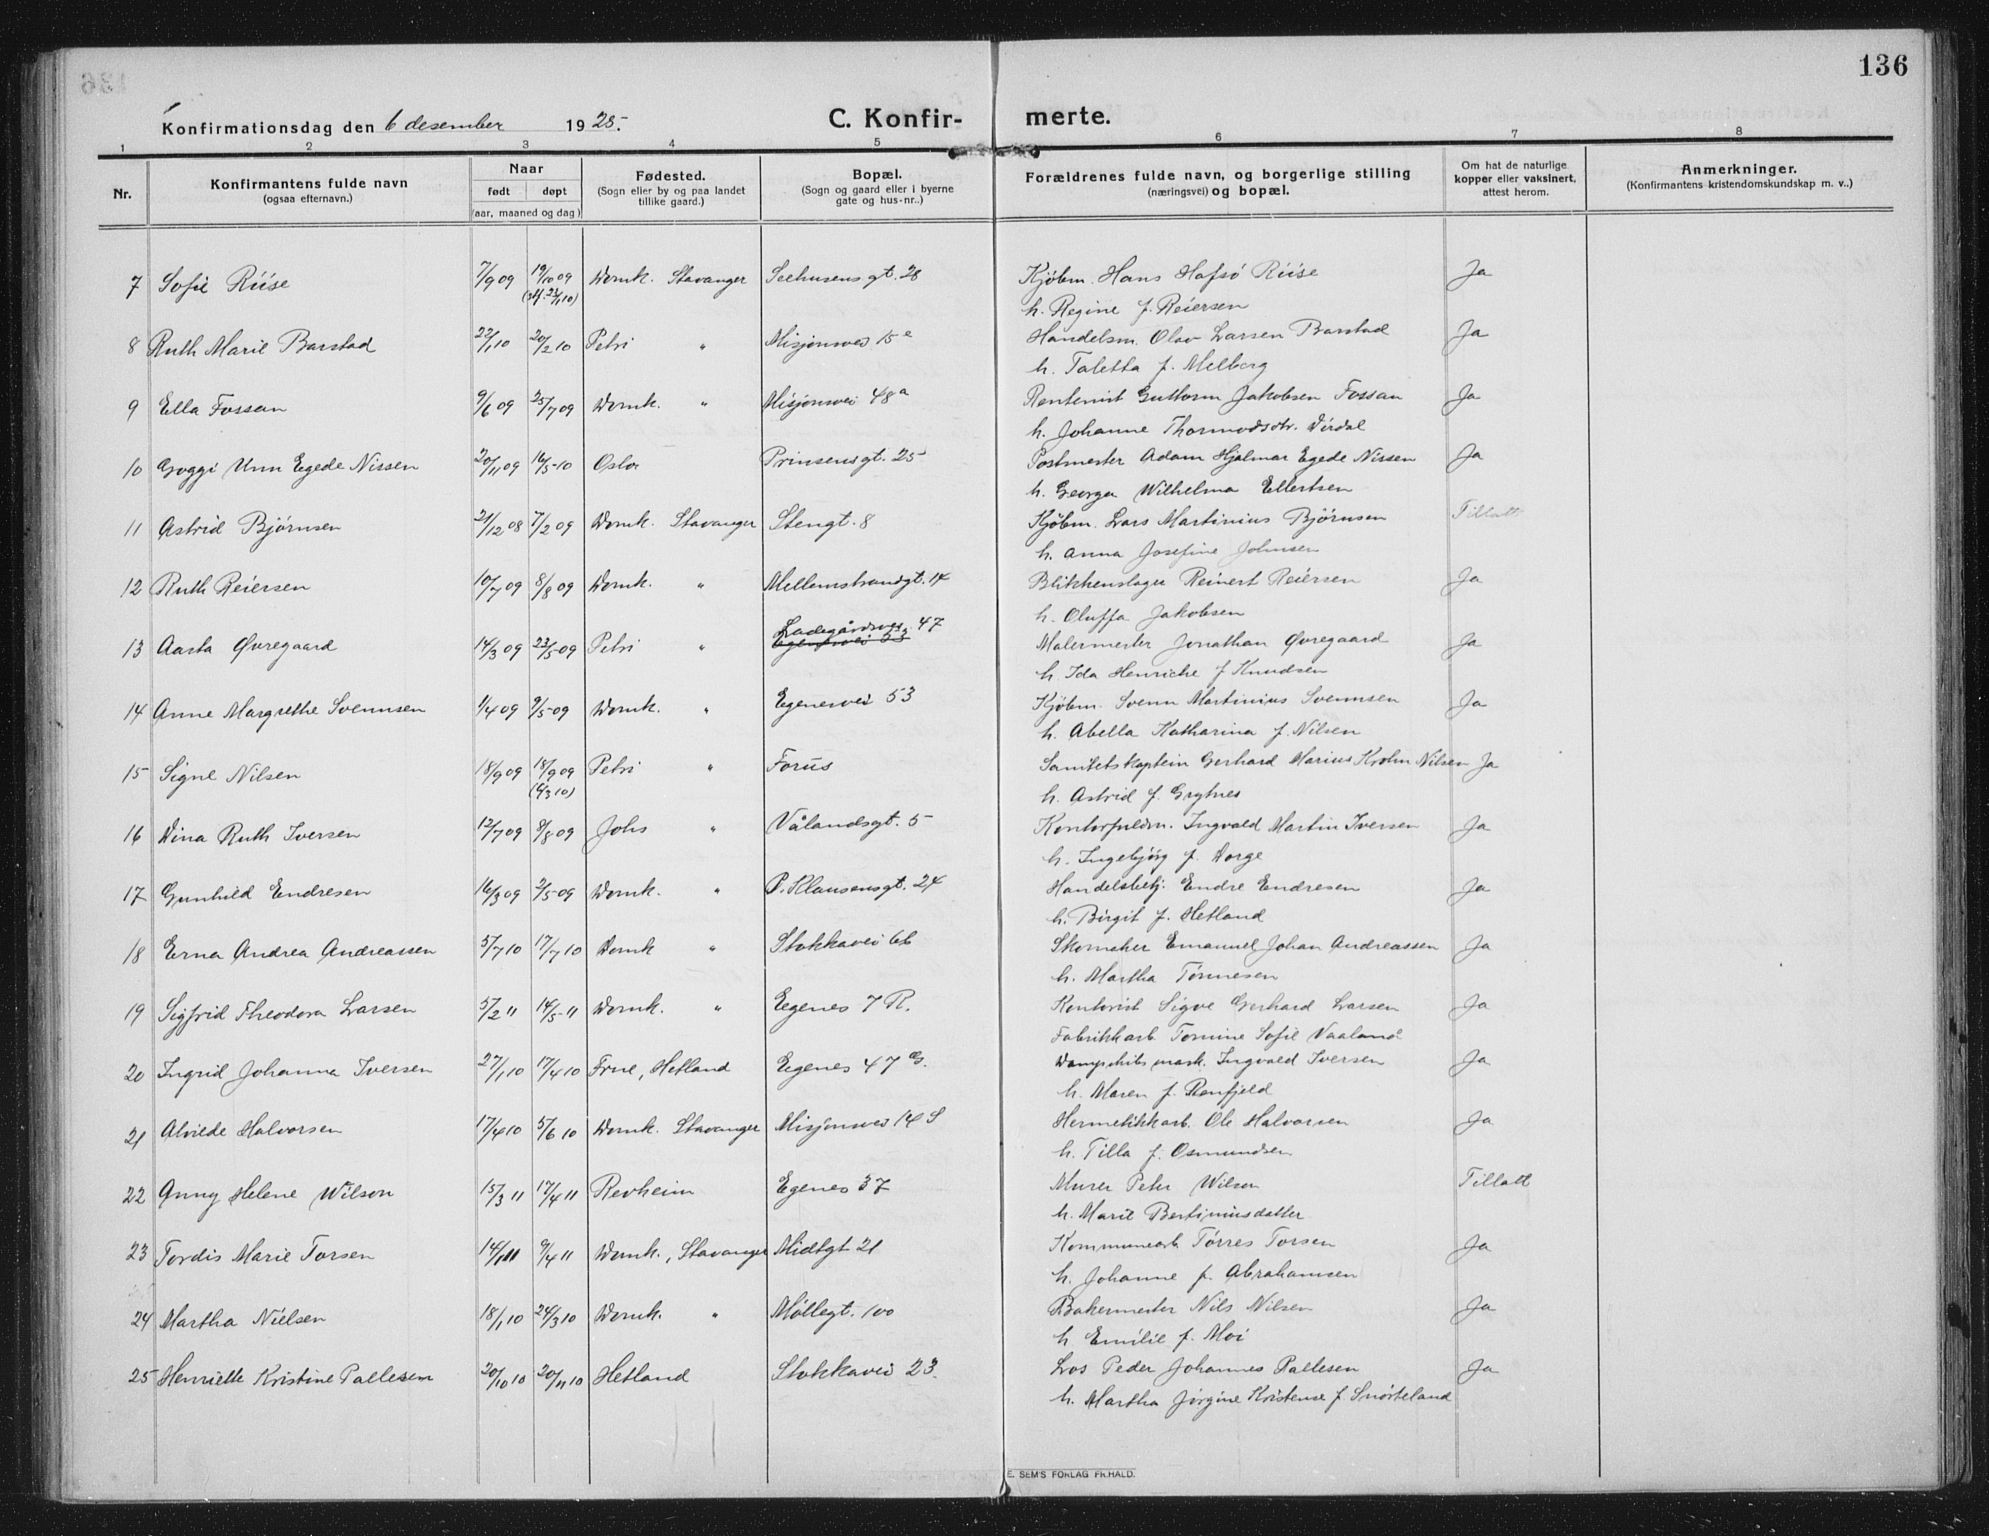 136
Konfirmationsdag den 6 desember 1925.
C. Konfirmerte.
1 2 3 4 5 6 7 8
Nr.
Konfirmantens fulde navn (ogsaa efternavn.)
Naar født døpt (aar, maaned og dag)
Fødested. (Sogn eller by og paa landet tillike gaard.)
Bopæl. (Sogn og gaard eller i byerne gate og hus-nr..)
Forældrenes fulde navn, og borgerlige stilling (næringsvei) og bopæl.
Om hat de naturlige kopper eller vaksinert, attest herom.
Anmerkninger. (Konfirmantens kristendomskundskap m. v..)
7 Sofie Riise 7/9 09 19/10 09 Domk. Stavanger Seehusensgt. 28 Kjøbm. Hans Hafsø Riise Ja
h. Regine f. Reiersen
8 Ruth Marie Barstad 22/1 10 20/2 10 Petri " Misjonsvei 15 e Handelsm. Olav Larsen Barstad Ja
h. Taletta f. Melberg
9 Ella Fossan 9/6 09 25/7 09 Domk. " Misjonsvei 48 a Rentenist Guttorm Jakobsen Fossan Ja
h. Johanne Thormodsdtr. Dirdal
10 Goggi Unn Egede Nissen 20/11 09 16/5-10 Oslo Prinsensgt. 25 Postmester Adam Hjalmar Egede Nissen Ja
h. Georga Wilhelma Ellertsen
11 Astrid Bjørnsen 21/12 08 7/2 09 Domk. Stavanger Stengt. 8 Kjøbm. Lars Martinius Bjørnsen Tillatt
h. Anna Josefine Johnsen
12 Ruth Reiersen 10/7 09 8/8 09 Domk. " Mellemstrandgt. 14 Blikkenslager Reinert Reiersen Ja
h. Oluffa Jakobsen
13 Aasta Øvregaard 14/3 09 23/5-09 Petri " Ladegårdsvei 47 Egenesvei 53 Malermester Jonathan Øvregaard Ja
h. Ida Henriche f Knudsen
14 Anne Margrethe Svennsen 1/4 09 9/5-09 Domk. " Egenesvei 53 Kjøbm. Svenn Martinius Svennsen Ja
h. Abella Katharina f. Nilsen
15 Signe Nilsen 18/9 09 18/9 09 Petri " Forus Sanitetskaptein Gerhard Marius Krohn Nilsen Ja
h. Astrid f. Grytnes
16 Dina Ruth Iversen 12/7 09 8/8 09 Johs " Vålandsgt. 5 Kontorfuldm. Ingvald Martin Iversen Ja
h. Ingebjørg f. Dorge
17 Gunhild Endresen 16/3 09 2/5-09 Domk. " P. Klausensgt. 24 Handelsbetj. Endre Endresen Ja
h. Birgit f. Hetland
18 Erna Andrea Andreassen 5/7 10 17/7 10 Domk " Stokkavei 66 Skomaker Emanuel Johan Andreassen Ja
h. Martha Tønnesen
19 Sigfrid Theodora Larsen 5/2 11 14/5-11 Domk. " Egenes 7 R. Kontorist Sigve Gerhard Larsen Ja
Fabrikkarb. Tomine Sofie Vaaland
20 Ingrid Johanna Iversen 27/1 10 17/4 10 Frue, Hetland Egenes 47 G. Dampskibsmask. Ingvald Iversen Ja
h. Maren f. Renfjeld
21 Alvilde Halvorsen 17/4 10 5/6 10 Domk. Stavanger Misjonsvei 14 S Hermetikkarb. Ole Halvorsen Ja
h. Tilla f. Osmundsen
22 Anny Helene Wilson 15/3 11 17/4 11 Revheim Egenes 37 Murer Peter Wilson Tillatt
h. Marie Bertiniusdatter
23 Tordis Marie Torsen 14/1 11 9/4 11 Domk., Stavanger Midtgt 21 Kommunearb. Tørres Torsen Ja
h. Johanne f. Abrahamsen
24 Martha Nielsen 18/1 10 24/3 10 Domk. " Møllegt. 100 Bakermester Nils Nilsen Ja
h Emilie f. Moi
25 Henriette Kristine Pallesen 20/10 10 20/11 10 Hetland Stokkavei 23. Los Peder Johannes Pallesen Ja
h. Martha Jørgine Kristense f Snørteland
E. SEM'S FORLAG FR.HALD.